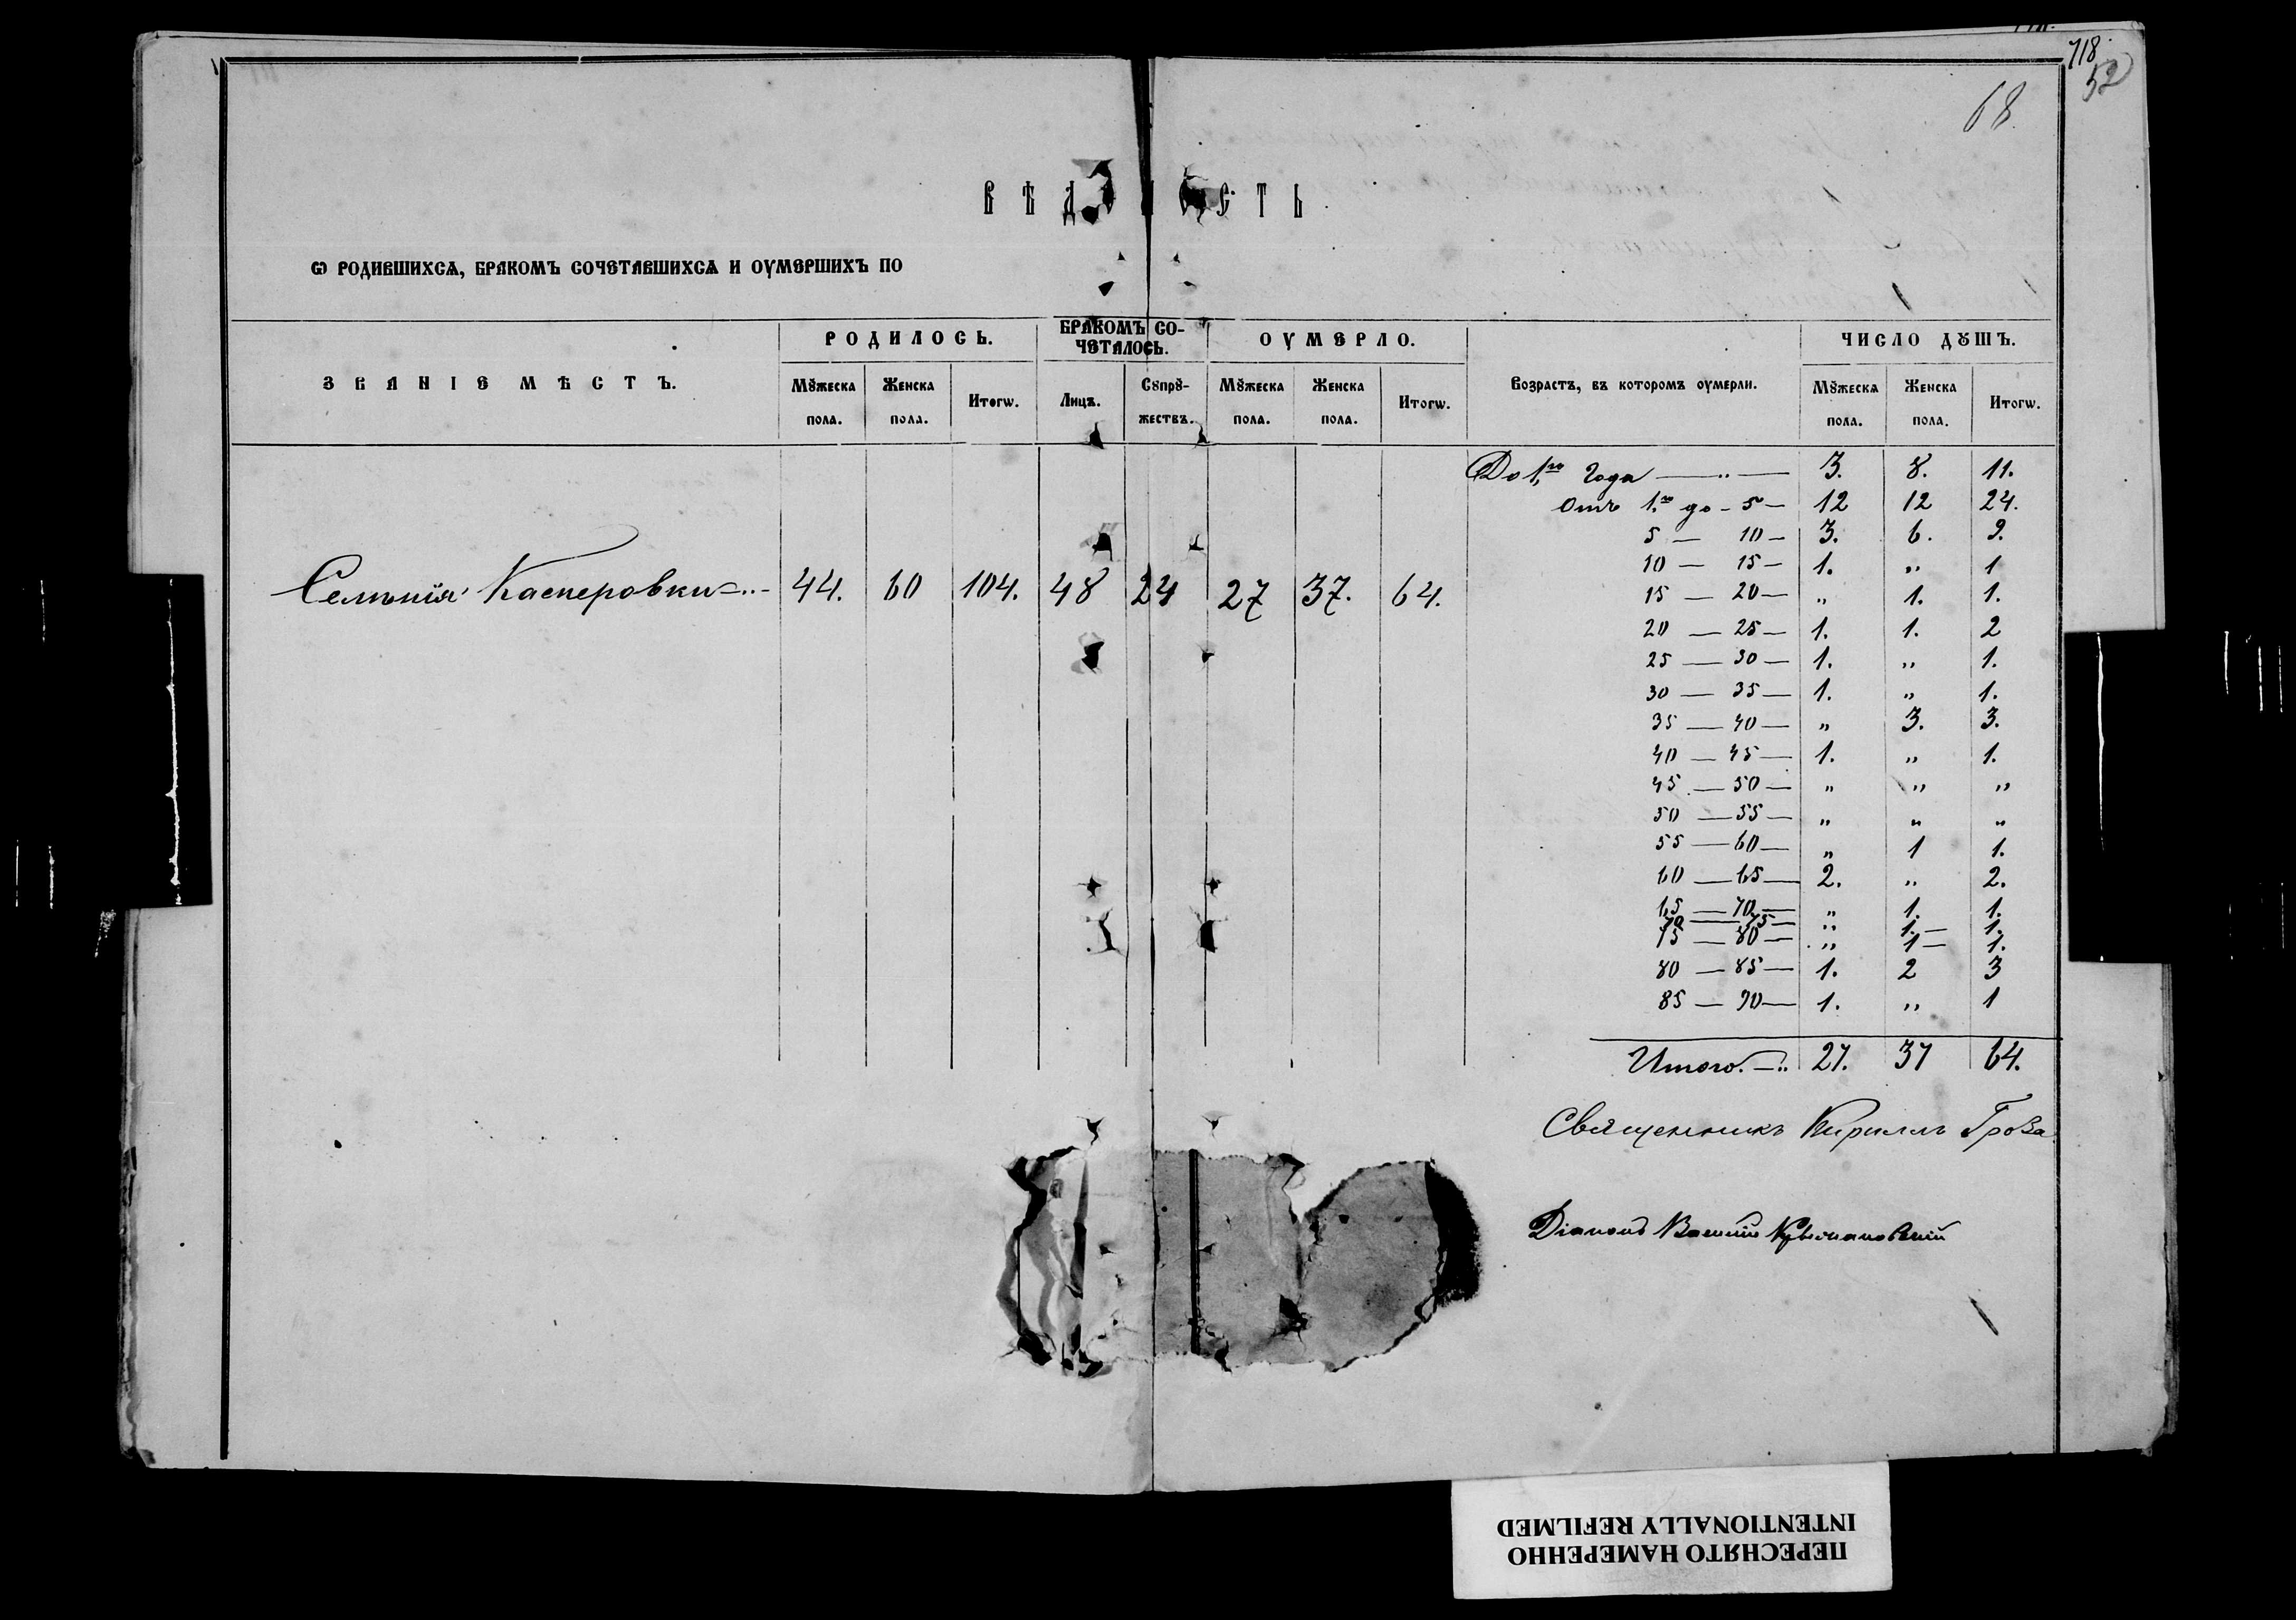 718.
52
68
ВѢДОМОСТЬ
Ѡ РОДИВШИХСѦ, БРАКОМЪ СОЧЕТАВШИХСѦ И ОУМЕРШИХЪ ПО
ЗВАНІЕ МѢСТЪ.
РОДИЛОСЬ.
БРАКОМЪ СО-
ЧЕТАЛОСЬ.
ОУМЕРЛО.
Возрастъ, въ которомъ оумерли.
ЧИСЛО ДꙊШЪ.
Мꙋжеска пола.
Женска пола.
Итогѡ.
Лицъ.
Сꙋпрꙋ-
жествъ.
Мꙋжеска пола.
Женска пола.
Итогѡ.
Мꙋжеска пола.
Женска пола.
Итогѡ.
Селенія Касперовки 44. 60 104. 48 24 27 37. 64.
До 1го года — „ — 3. 8. 11.
Отъ 1.го до - 5 — 12 12 24.
5 — 10 — 3. 6. 9.
10 — 15 — 1. „ 1
15 — 20 — „ 1. 1.
20 — 25 — 1. 1. 2
25 — 30 — 1. „ 1.
30 — 35 — 1. „ 1.
35 — 40 — „ 3. 3.
40 — 45 — 1. „ 1.
45 — 50 — „ „ „
50 — 55 — „ „ „
55 — 60 — „ 1 1.
60 — 65 — 2. „ 2.
65 — 70 — „ 1. 1.
70 — 75 — „ 1. — 1.
75 — 80 — „ 1 — 1.
80 — 85 — 1. 2 3
85 — 90 — 1. „ 1
Итого. 27. 37 64.
Священникъ Кириллъ Гроза
Діаконъ
ПЕРЕСНЯТО НАМЕРЕННО
INTENTIONALLY REFILMED